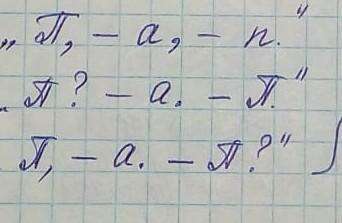 „П, – а, – п."
П? – а. – П."
П, – а. – П?"